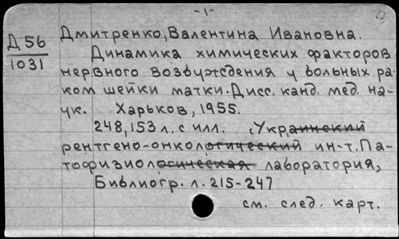 -1-
Дмитренко, Валентина Ивановна.
Д 56
1031
Динамика химических факторов
нервного возбуждения у больных ра-
ком шейки матки. Дисс. канд. мед. на-
ук. Харьков, 1955.
248, 153 л. с илл. (Украинский
рентгено-онкологический ин-т. Па-
тофизиологическая лаборатория,
Библиогр. л. 215-247
см. след. карт.